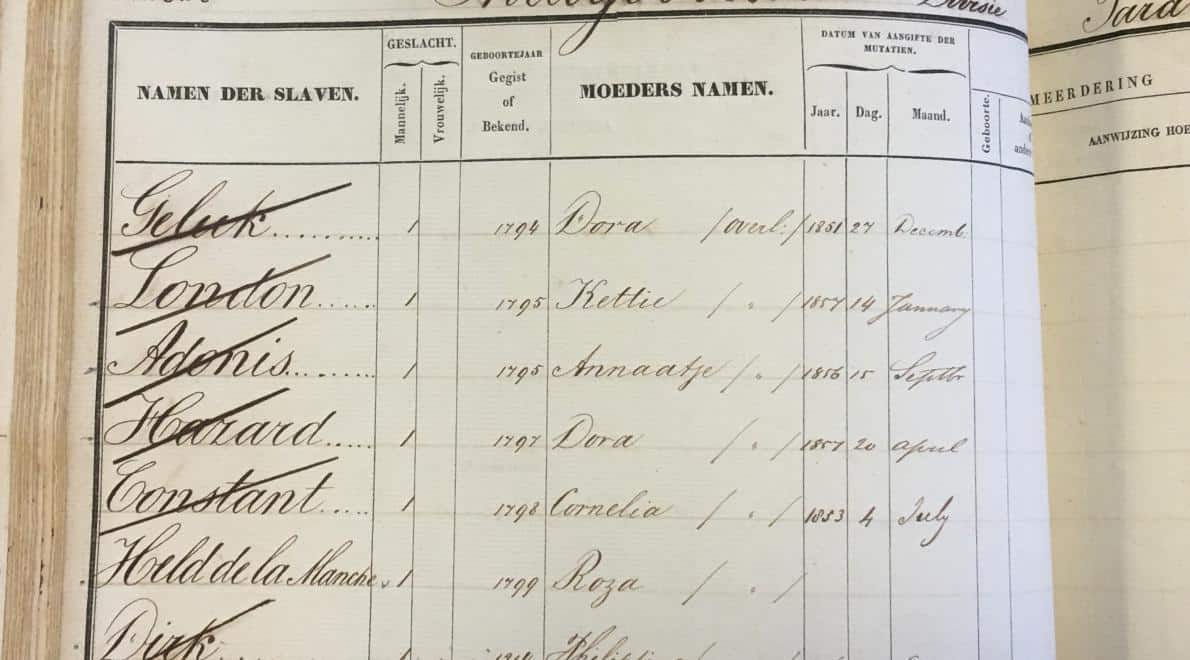 Divisie
NAMEN DER SLAVEN.
GESLACHT.
Mannelijk.
Vrouwelijk.
GEBOORTEJAAR
Gegist
of
Bekend.
MOEDERS NAMEN.
DATUM VAN AANGIFTE DER
MUTATIEN.
Jaar. Dag. Maand.
Geboorte.
MEERDERING
AANWIJZING HOE
Geluk.......... 1 1794 Dora /overl:/ 1851 27 Decemb.
London...... 1 1795 Kettie / " / 1857 14 January
Adonis........ 1 1795 Annaatje / " / 1856 15 Septbr
Hazard..... 1 1797 Dora / " / 1857 20 april
Constant..... 1 1798 Cornelia / " / 1853 4 July
Held de la Manche 1 1799 Roza / " /
Dirk